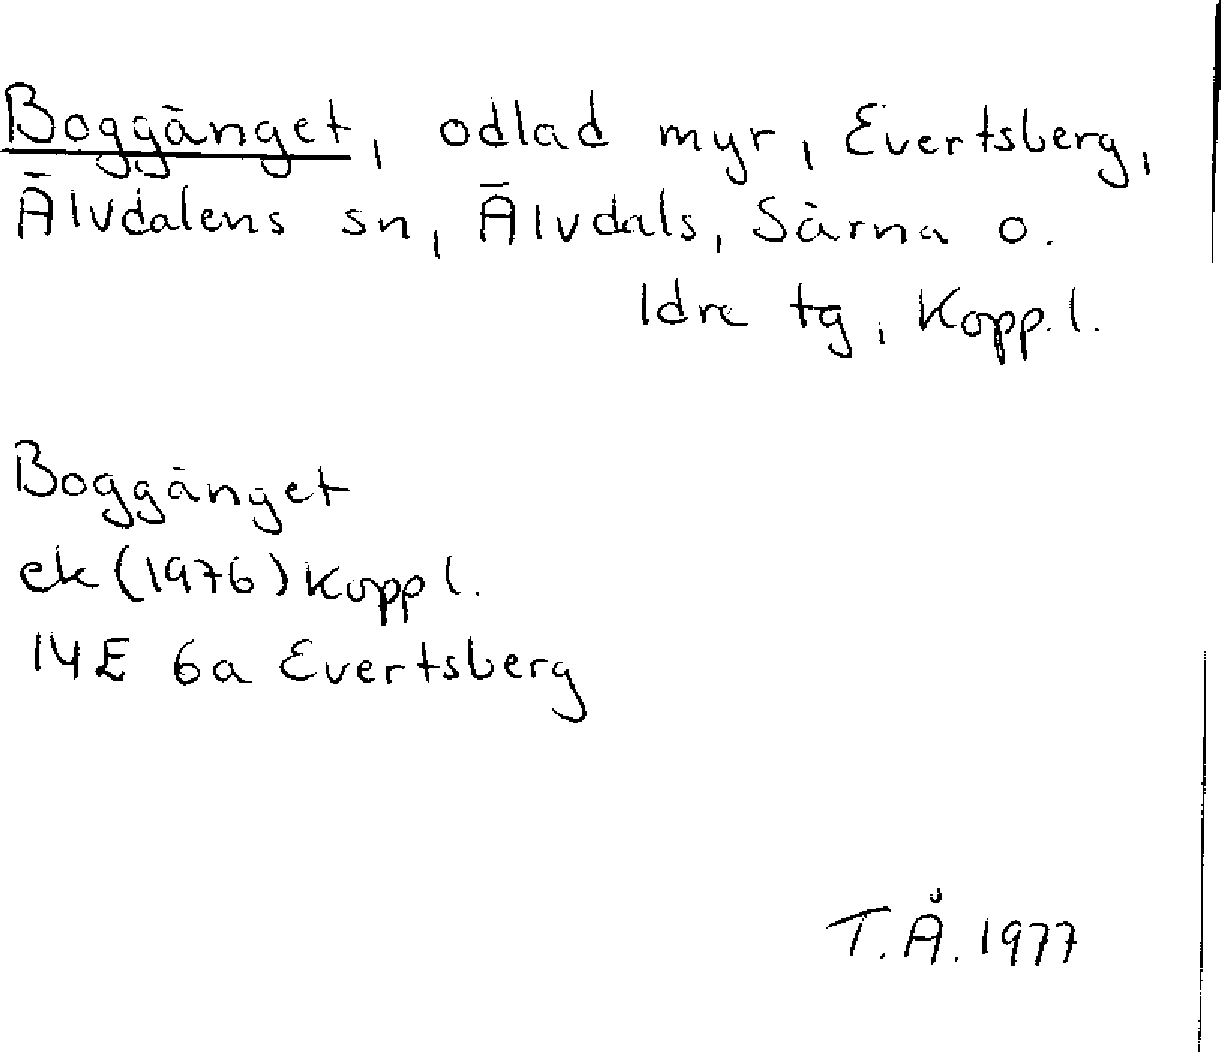 Boggänget, odlad myr, Evertsberg,
Älvdalens sn, Älvdals, Särna o.
Idre tg, Kopp. l.
Boggänget
ek (1976) Kopp l.
14E 6a Evertsberg
T.Å. 1977